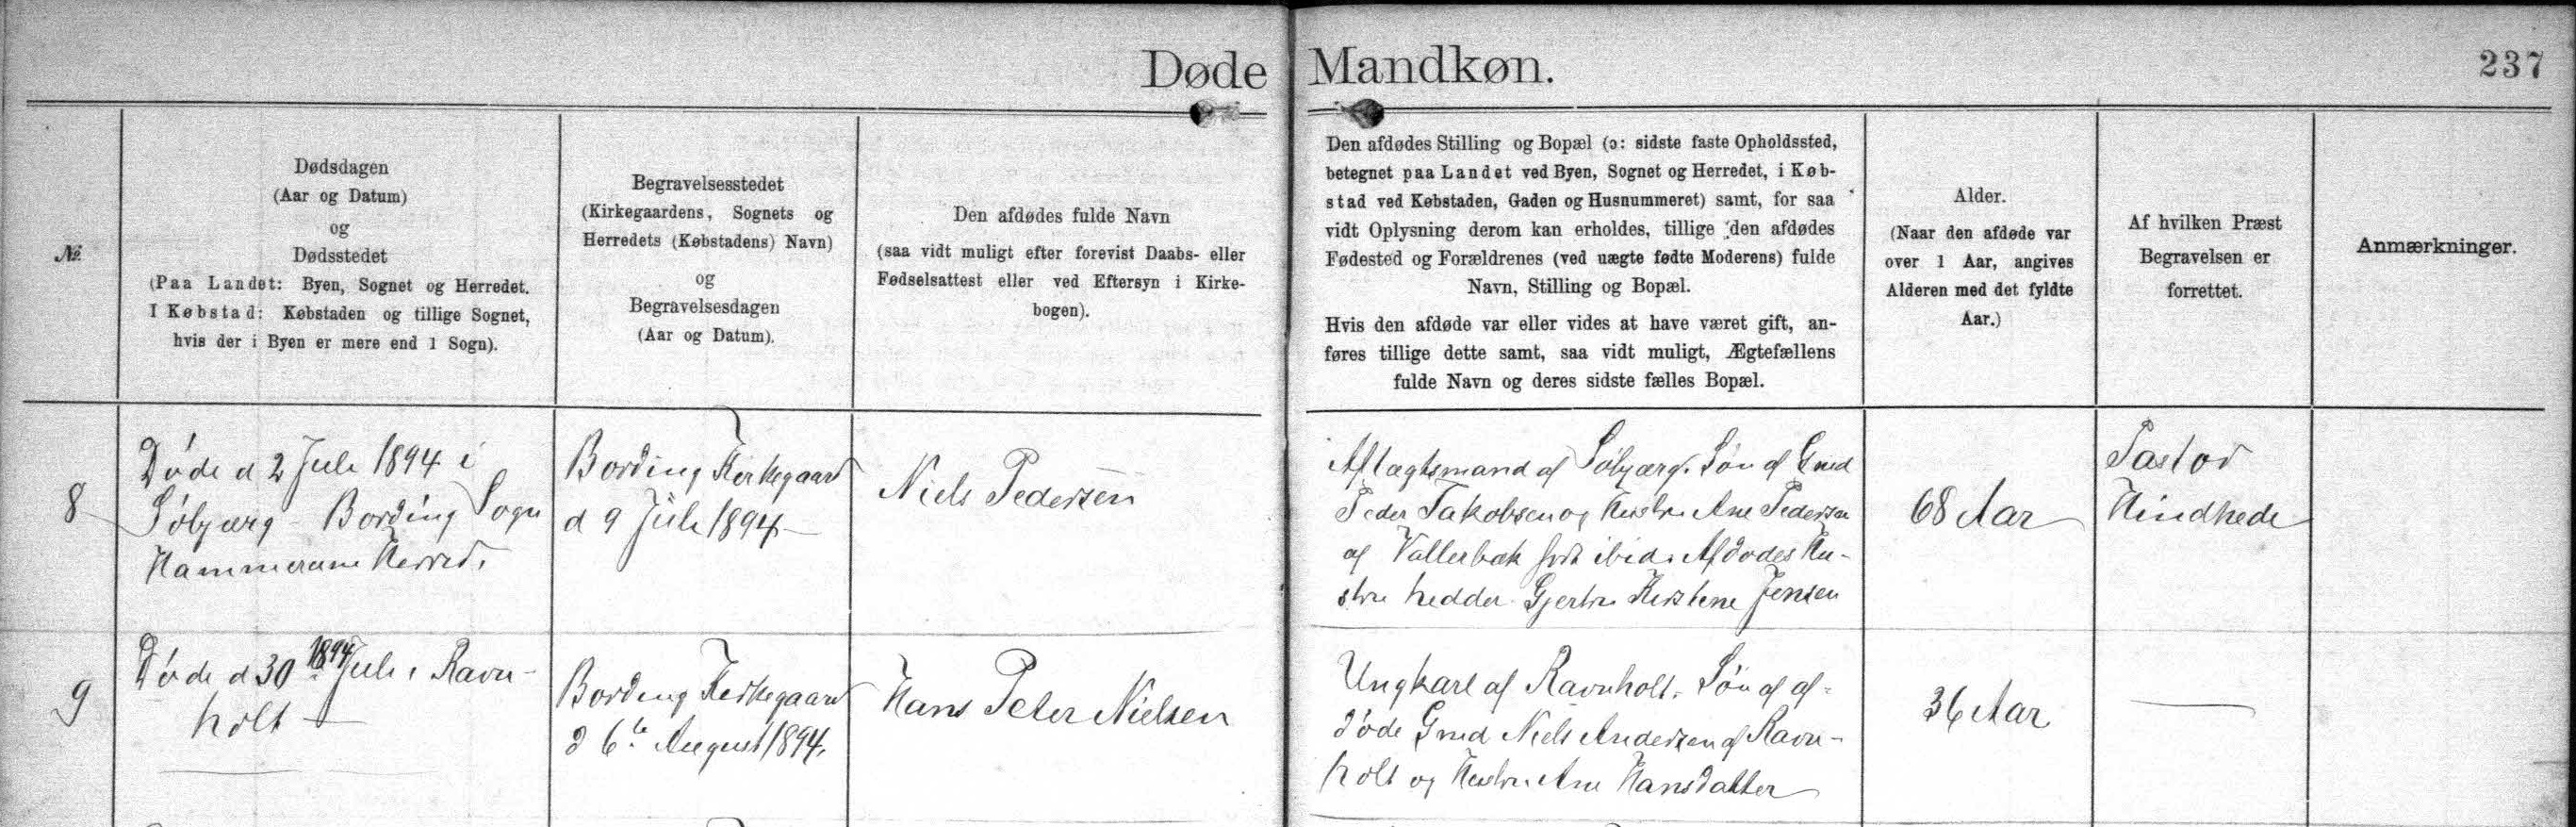 Døde Mandkøn.
237
№
Dødsdagen
(Aar og Datum)
og
Dødsstedet
(Paa Landet: Byen, Sognet og Herredet.
I Købstad: Købstaden og tillige Sognet,
hvis der i Byen er mere end 1 Sogn).
Begravelsesstedet
(Kirkegaardens, Sognets og
Herredets (Købstadens) Navn)
og
Begravelsesdagen
(Aar og Datum).
Den afdødes fulde Navn
(saa vidt muligt efter forevist Daabs- eller
Fødselsattest eller ved Eftersyn i Kirke-
bogen).
Den afdødes Stilling og Bopæl (ɔ: sidste faste Opholdssted,
betegnet paa Landet ved Byen, Sognet og Herredet, i Køb-
stad ved Købstaden, Gaden og Husnummeret) samt, for saa
vidt Oplysning derom kan erholdes, tillige den afdødes
Fødested og Forældrenes (ved uægte fødte Moderens) fulde
Navn, Stilling og Bopæl.
Hvis den afdøde var eller vides at have været gift, an-
føres tillige dette samt, saa vidt muligt, Ægtefællens
fulde Navn og deres sidste fælles Bopæl.
Alder.
(Naar den afdøde var
over 1 Aar, angives
Alderen med det fyldte
Aar.)
Af hvilken Præst
Begravelsen er
forrettet.
Anmærkninger.
8
Døde d 2 Juli 1894 i
Søbjærg - Bording Sogn
Hammerum Herred.
Bording Kirkegaard
d 9 Juli 1894
Niels Pedersen
Aftægtsmand af Søbjærg. Søn af Gmd
Peder Jakobsen og Hustru Ane Pedersen
af Vallerbæk født ibid. Afdødes Hu-
stru hedder Gjertru Kirstine Jensen
68 Aar
Pastor
Hindhede
9
Døde d 30 Juli 1894 i Ravn-
holt
Bording Kirkegaard
d 6te August 1894.
Hans Peter Nielsen
Ungkarl af Ravnholt. Søn af af-
døde Gmd Niels Andersen af Ravn-
holt og Hustru Ane Hansdatter
36 Aar